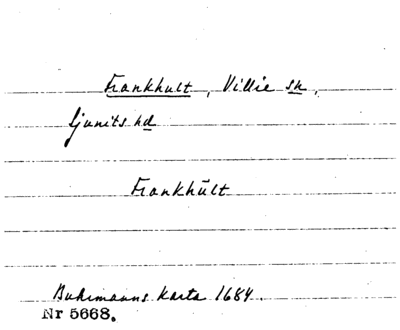 Frankhult, Villie sn,
Ljunits hd
Frankhūlt
Buhrmanns karta 1684.
Nr 5668.